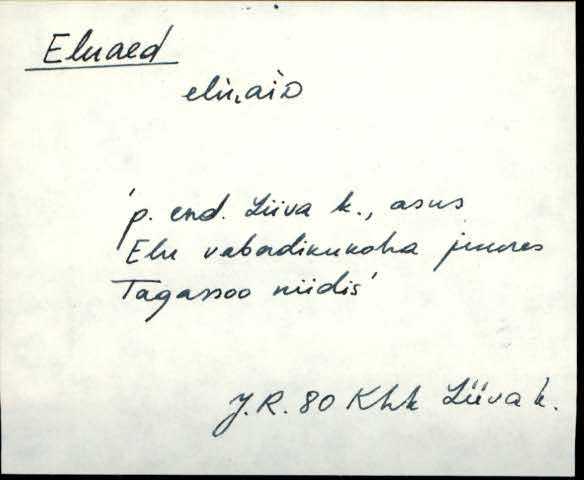 Eluaed
elu,aiᴅ
'p. end. Liiva k., asus
Elu vabadikukoha juures
Tagassoo niidis'
J.R. 80 Khk Liiva k.